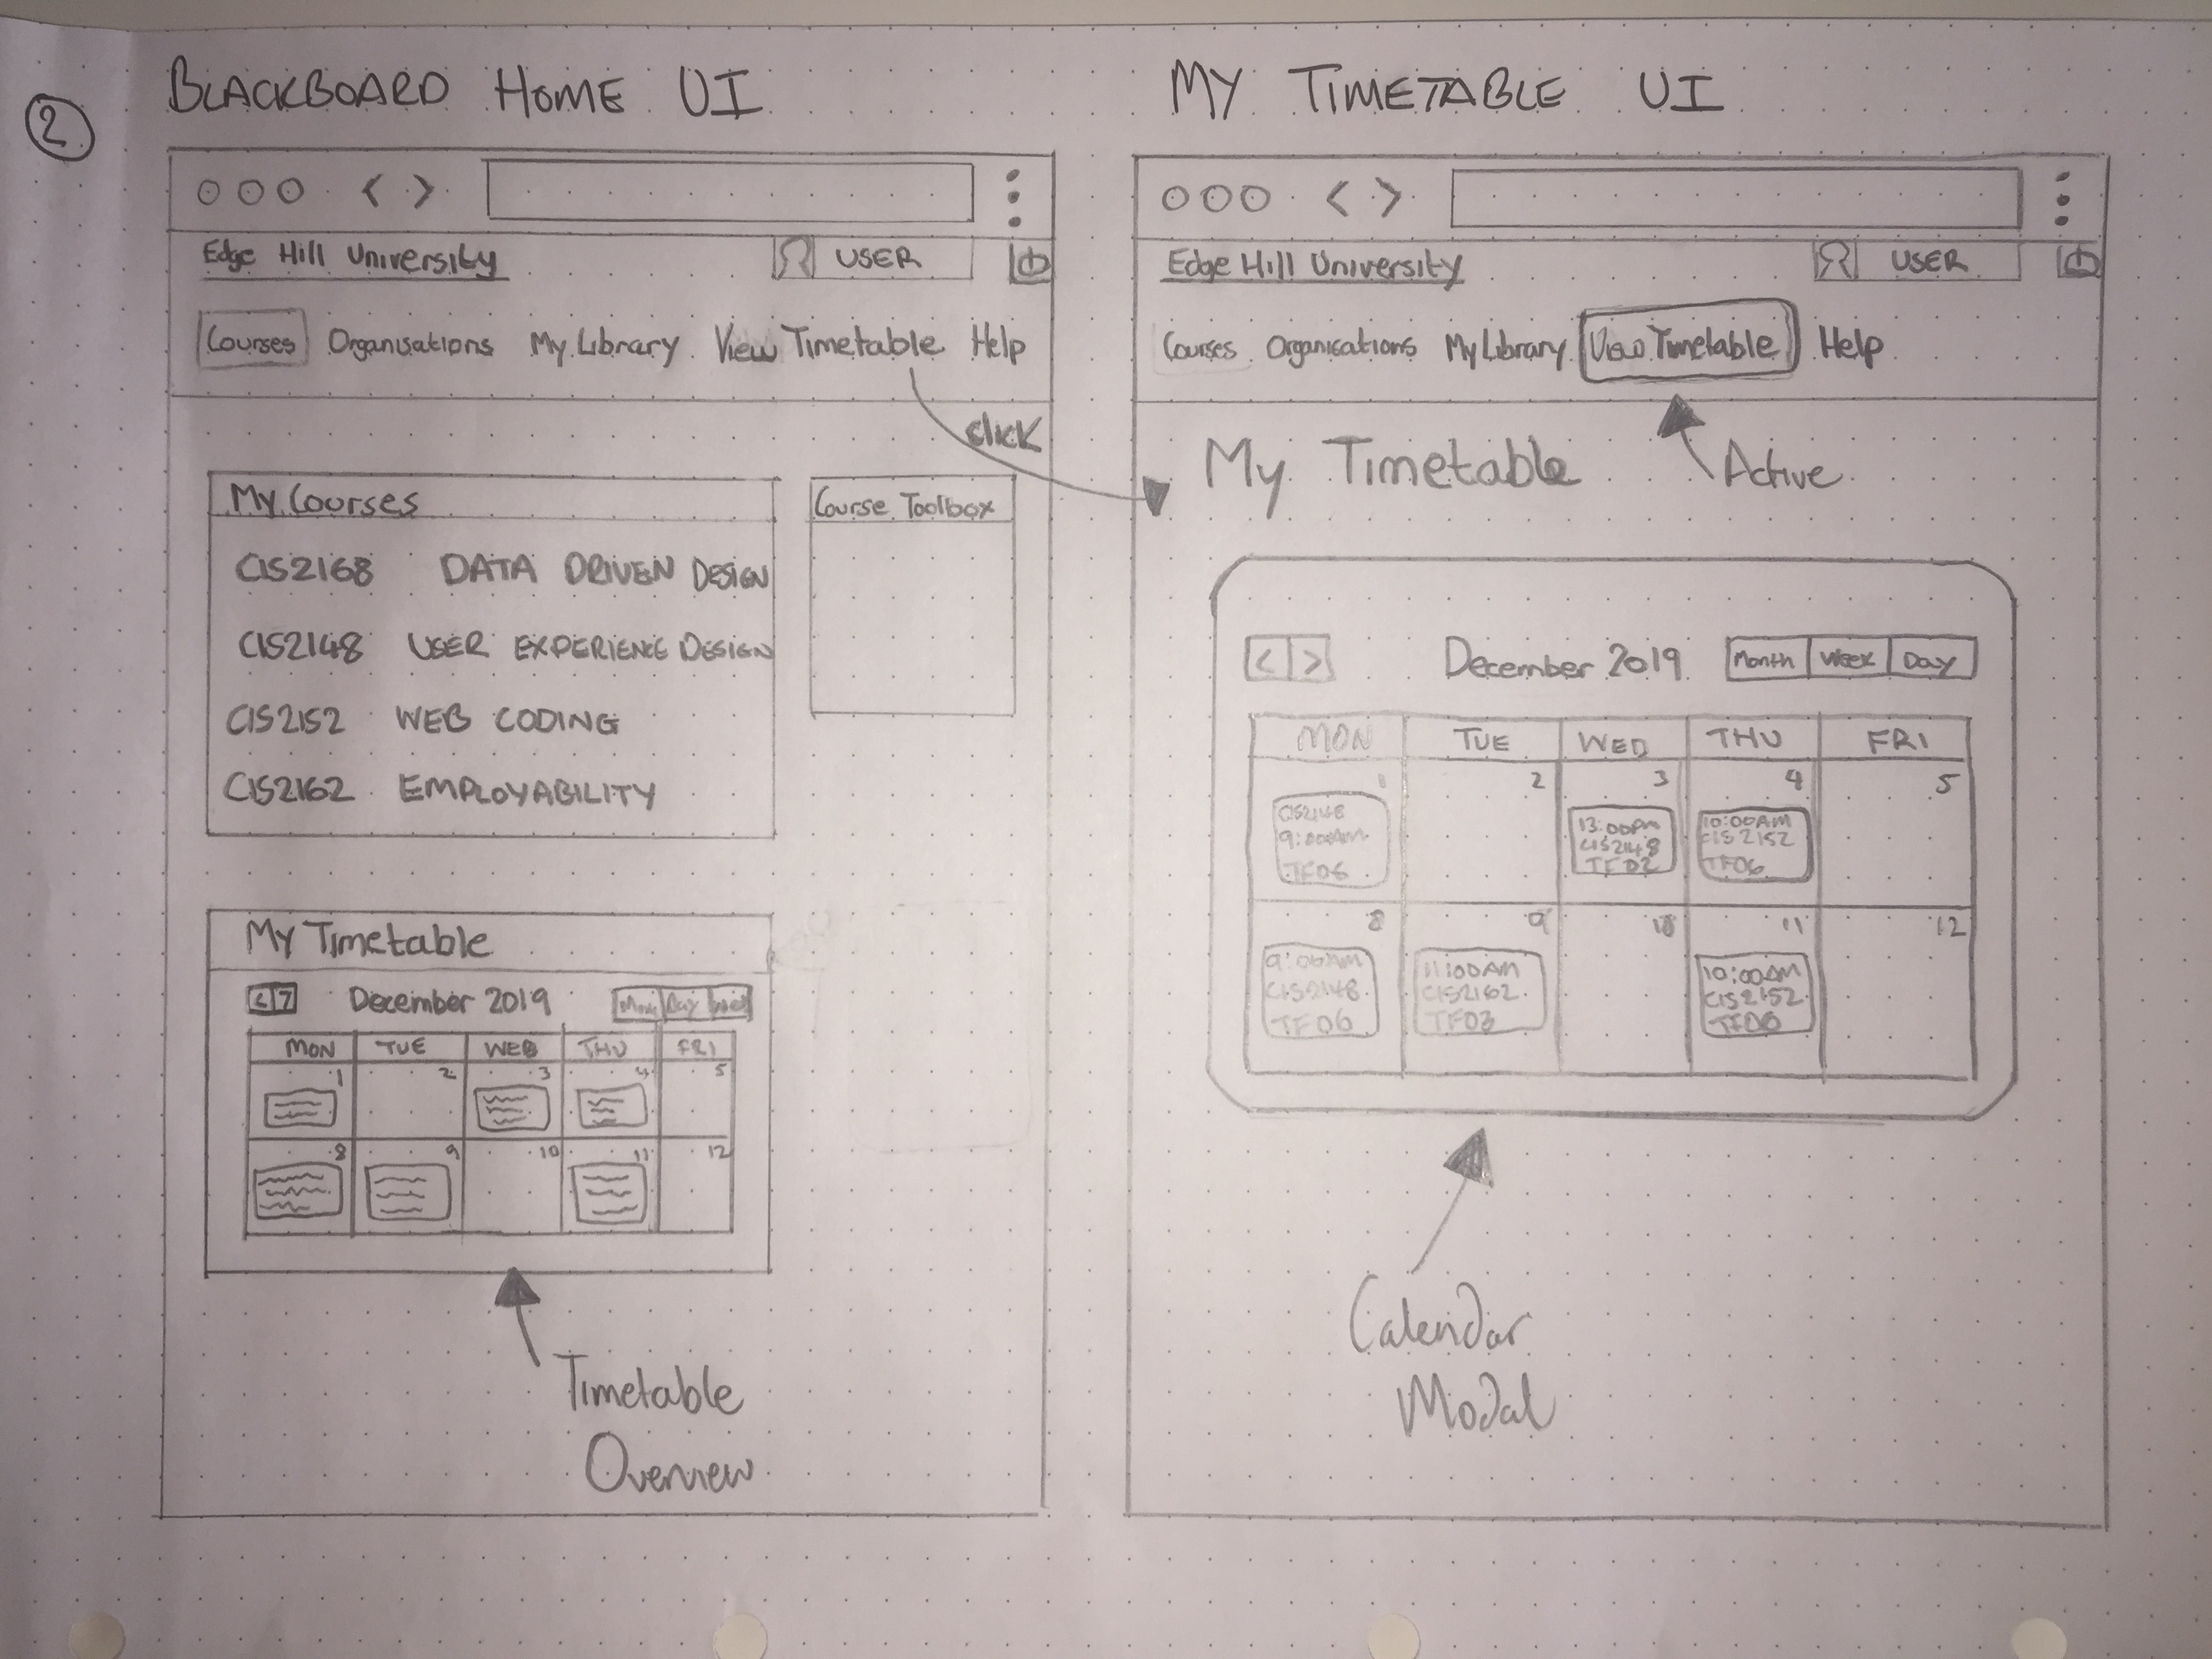 2
BLACKBOARD HOME UI
Edge Hill University
USER
Courses Organisations My Library View Timetable Help
click
My Courses
CIS2168 DATA DRIVEN DESIGN
CIS2148 USER EXPERIENCE DESIGN
CIS2152 WEB CODING
CIS2162 EMPLOYABILITY
Course Toolbox
My Timetable
< > December 2019 Day
MON TUE WED THU FRI
1 2 3 4 5
8 9 10 11 12
Timetable
Overview
MY TIMETABLE UI
Edge Hill University
USER
Courses Organisations My Library View Timetable Help
Active
My Timetable
< > December 2019 Month Week Day
MON TUE WED THU FRI
1 2 3 4 5
CIS2148
9:00AM
TF06
13:00PM
CIS2148
TF02
10:00AM
CIS2152
TF06
8 9 10 11 12
9:00AM
CIS2148
TF06
11:00AM
CIS2162
TF03
10:00AM
CIS2152
TF06
Calendar
Modal